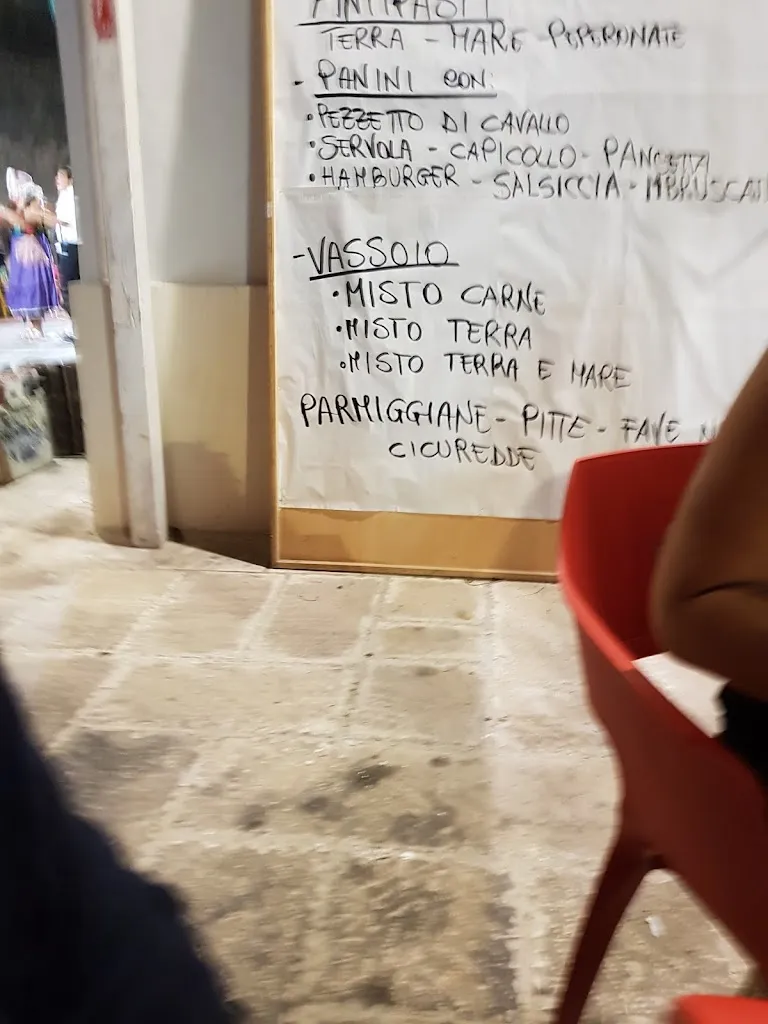 ANTIPASTI
TERRA - MARE - PEPERONATE
- PANINI CON:
• PEZZETTO DI CAVALLO
• SERVOLA - CAPICOLLO - PANCETTA
• HAMBURGER - SALSICCIA - MBRUSCATI
- VASSOIO
• MISTO CARNE
• MISTO TERRA
• MISTO TERRA E MARE
PARMIGGIANE - PITTE - FAVE
CICUREDDE